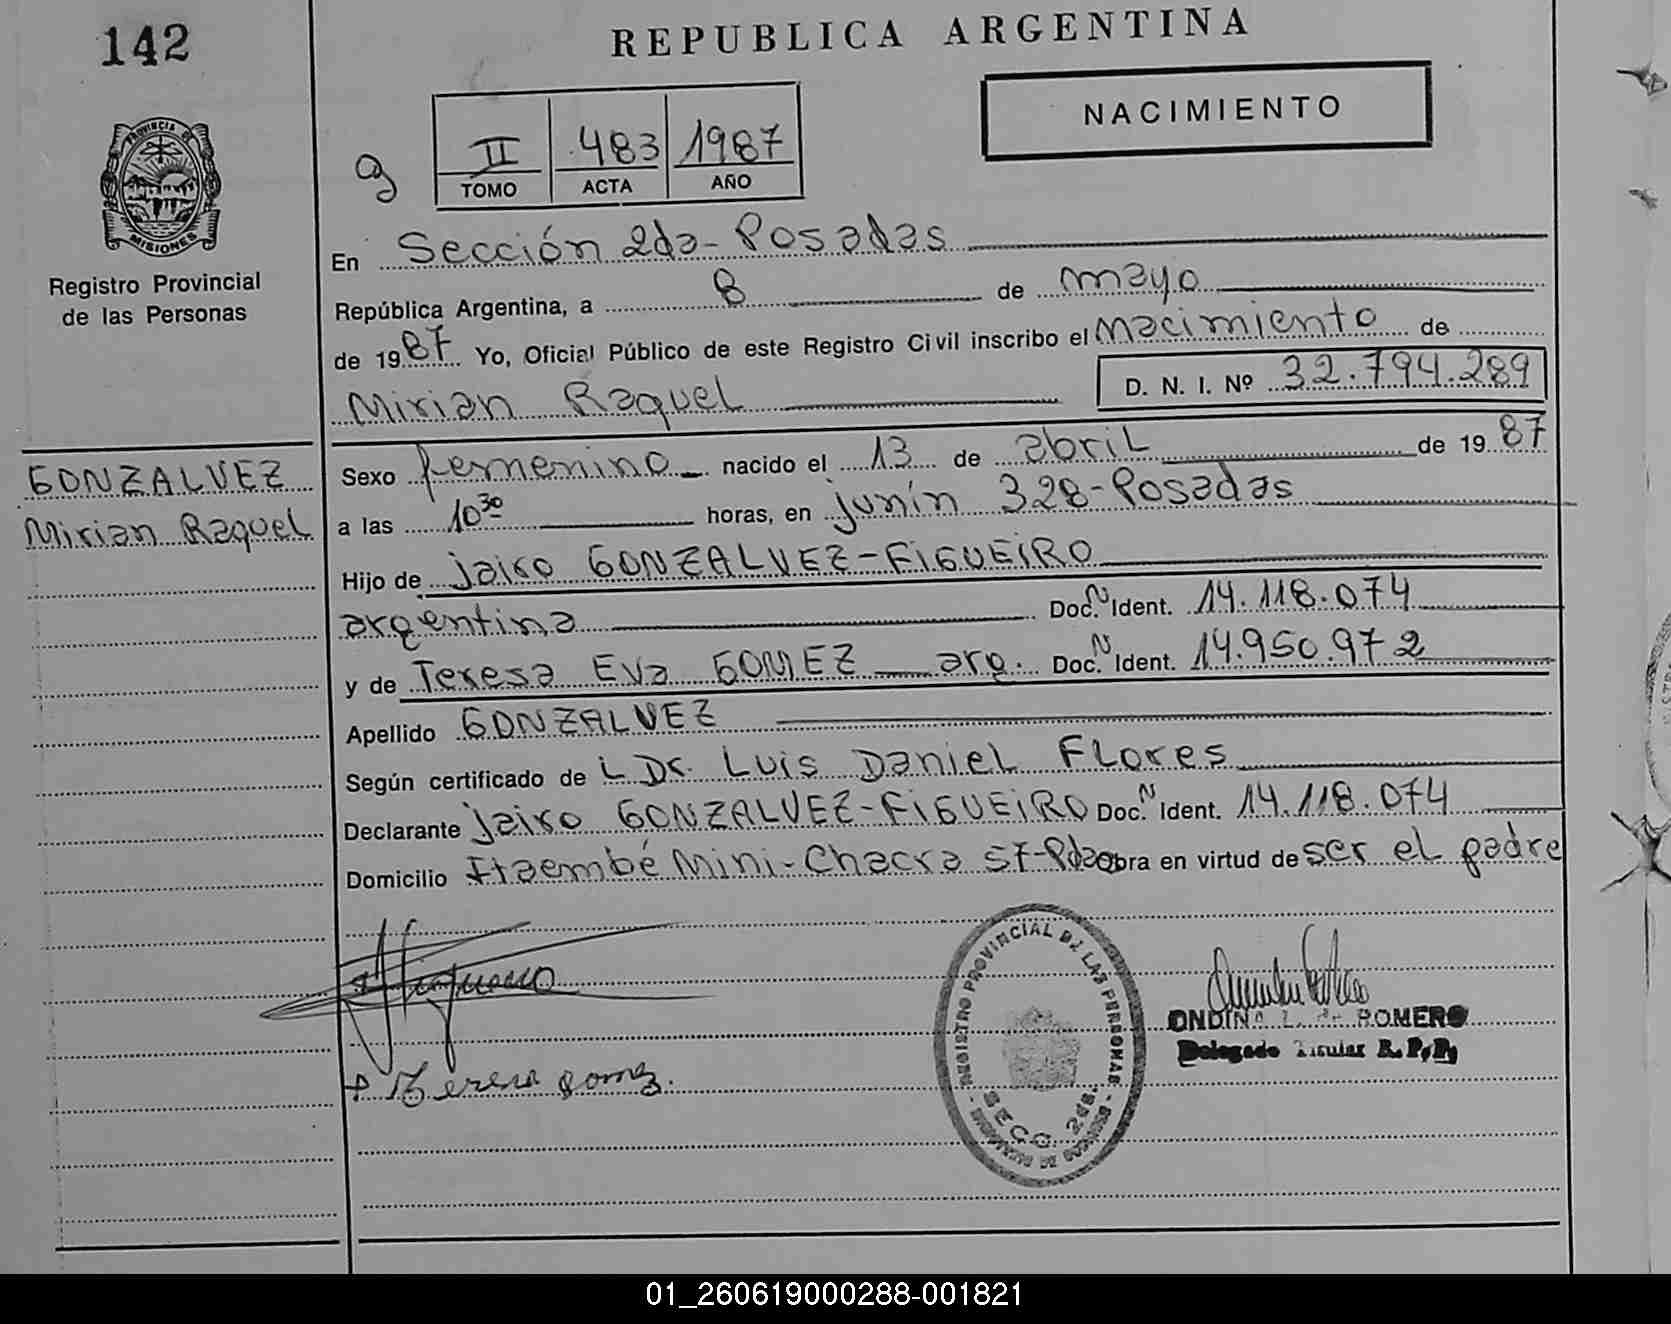 142
REPUBLICA ARGENTINA
NACIMIENTO
II 483 1987
TOMO ACTA AÑO
PROVINCIA DE
MISIONES
Registro Provincial
de las Personas
En Sección 2da - Posadas
República Argentina, a 8 de mayo
de 1987 Yo, Oficial Público de este Registro Civil inscribo el Nacimiento de
Mirian Raquel D. N. I. Nº 32.794.289
GONZALVEZ
Mirian Raquel
Sexo femenino nacido el 13 de abril de 1987
a las 10 30 horas, en junín 328 - Posadas
Hijo de jairo GONZALVEZ - FIGUEIRO
argentina Doc. N Ident. 14.118.074
y de Teresa Eva GOMEZ arg. Doc. N Ident. 14.950.972
Apellido GONZALVEZ
Según certificado de L Dr. Luis Daniel Flores
Declarante jairo GONZALVEZ - FIGUEIRO Doc. N Ident. 14.118.074
Domicilio Itaembé Mini - Chacra 57 - Pdas Obra en virtud de ser el padre
REGISTRO PROVINCIAL DE LAS PERSONAS
SECC. 2da.
ROMERO
Delegado Titular R. P. P.
Teresa Gomez.
01_260619000288-001821